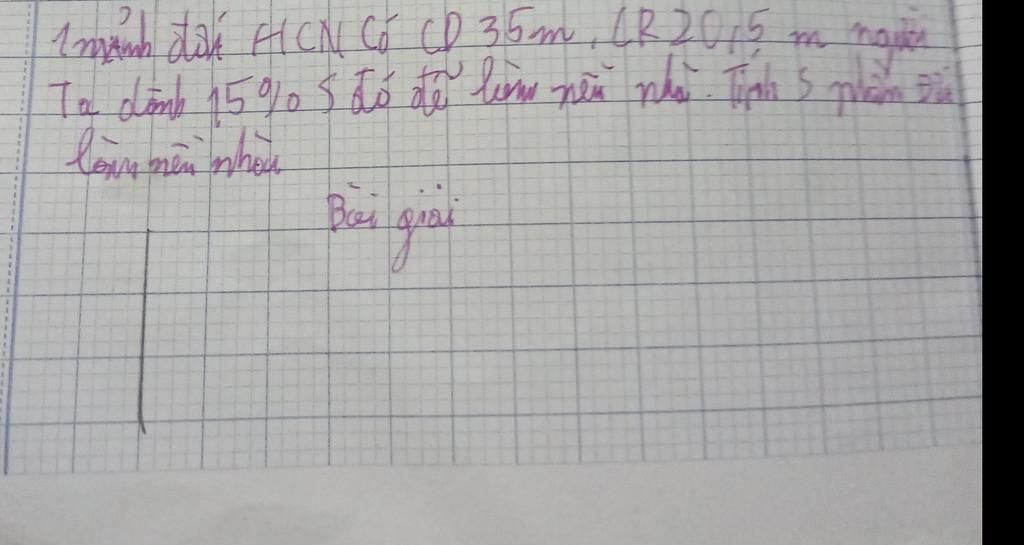 1 mảnh đất HCN Có CD 35m, CR 20,5 m người
Ta dành 15% S đó để làm nền nhà. Tính S phần đất
làm nền nhà
Bài giải